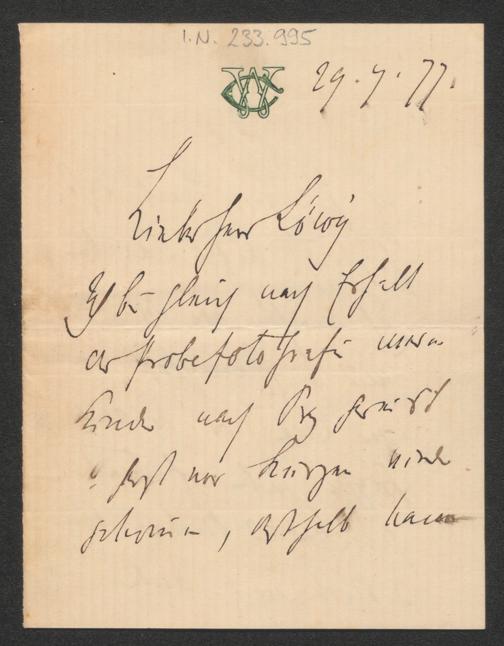 I.N. 233.995
29.7.77.
Lieber Herr Löwy
Ich bin gleich nach Erhalt
der Probefotografie unserer
Kinder nach Prg gereist
u. erst vor kurzem wieder
gekommen, deshalb kann